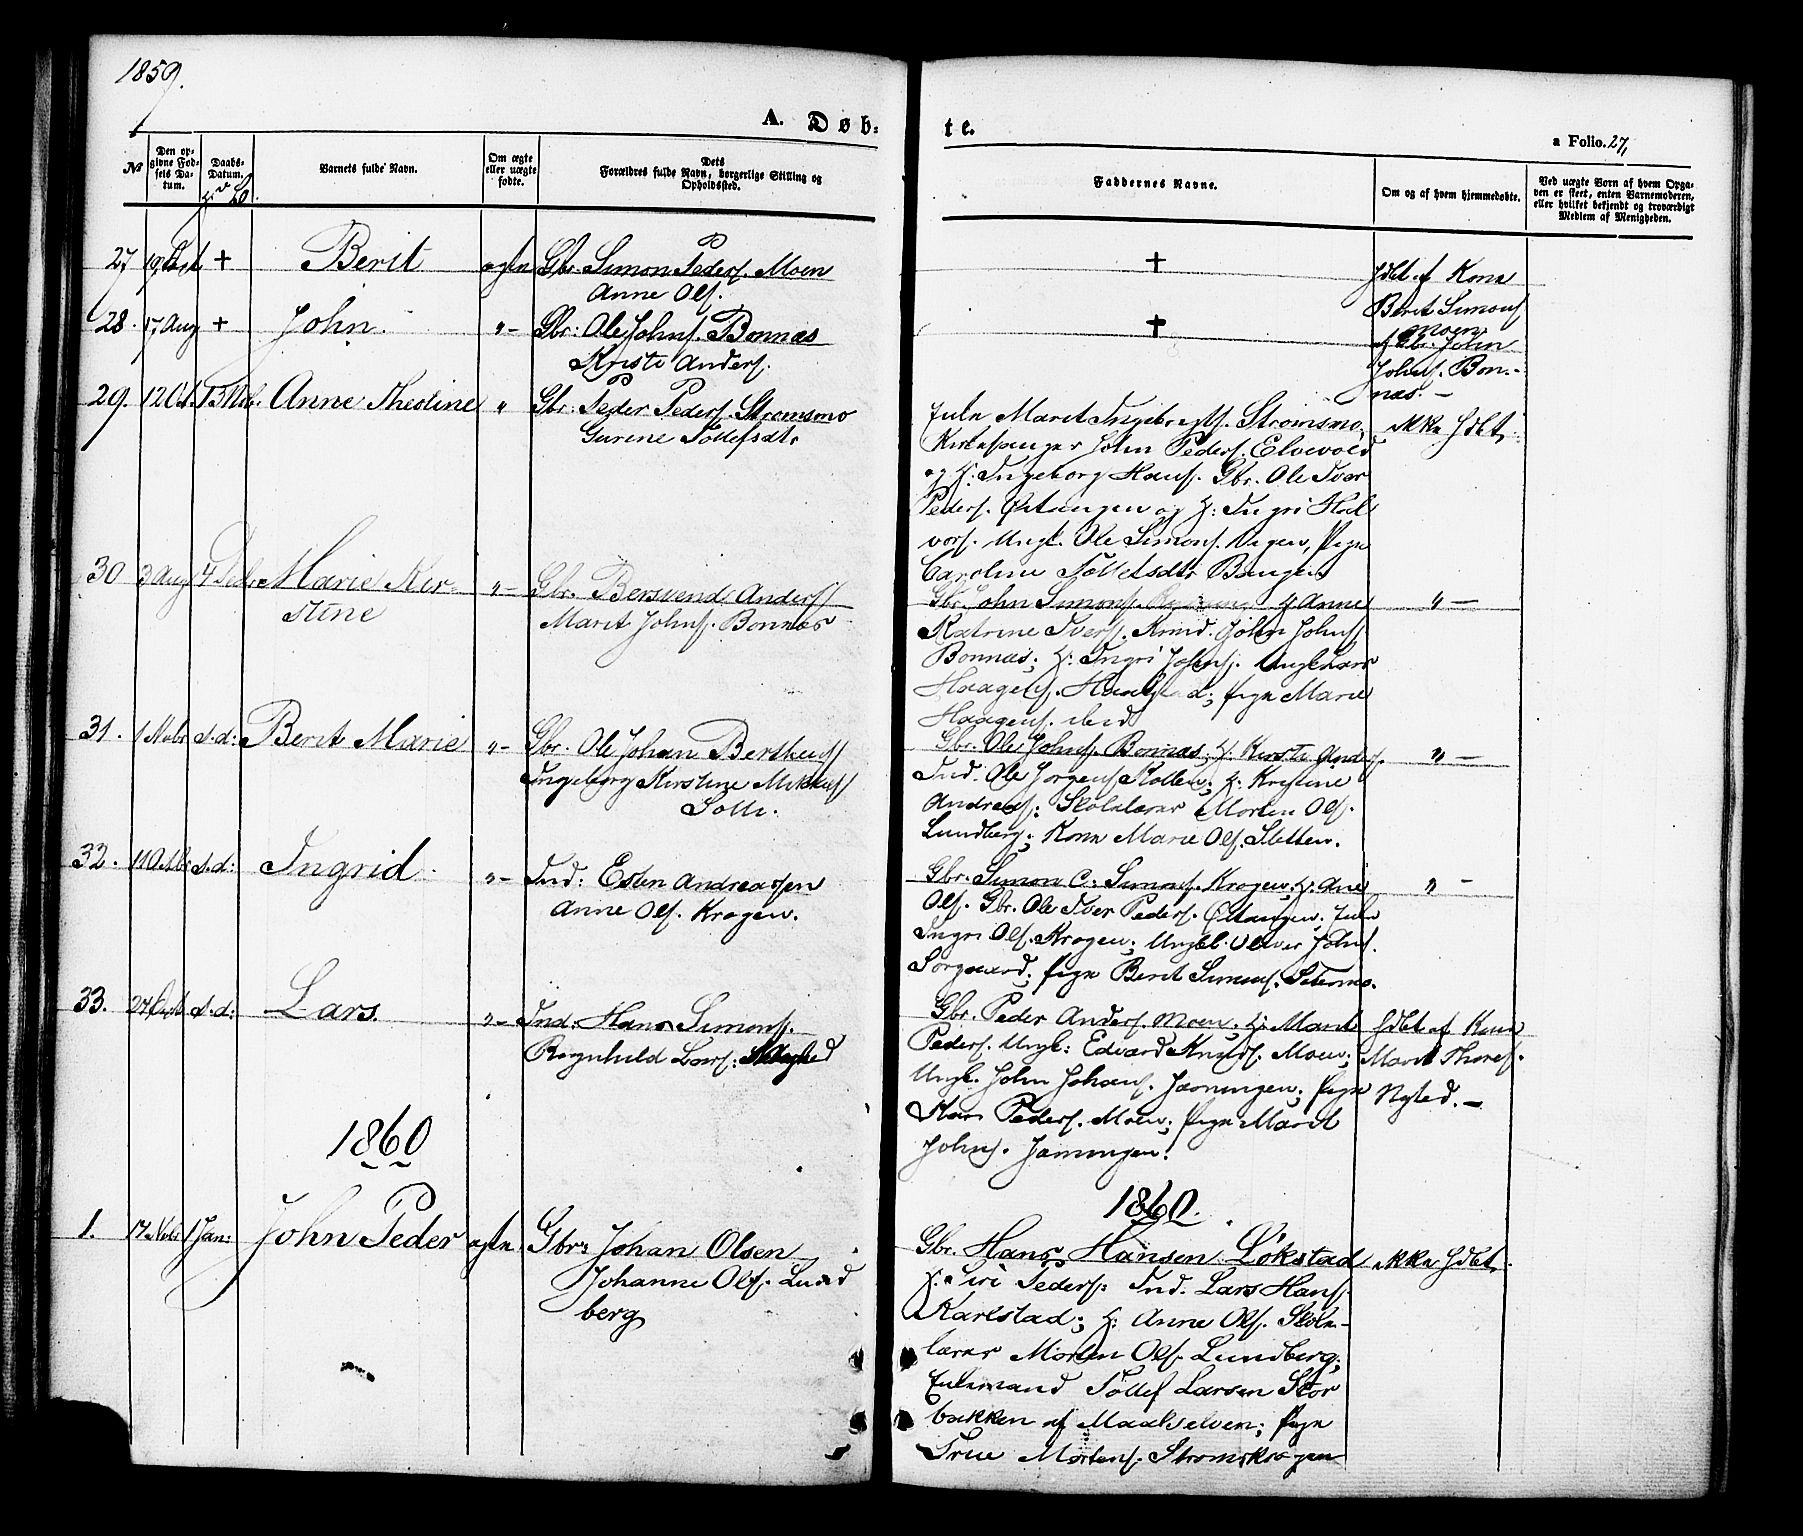 1859.
A. Døb:
te.
a Folio. 27,
№
Den op-
givne Fød-
sels Da-
tum.
Daabs-
Datum.
Barnets fulde Navn.
Om ægte
eller uægte
fødte.
Dets
Forældres fulde Navn, borgerlige Stilling og
Opholdssted.
Faddernes Navne.
Om og af hvem hjemmedøbte.
Ved uægte Børn af hvem Opga-
ven er skeet, enten Barnemoderen,
eller hvilket bekjendt og troværdigt
Medlem af Menigheden.
27 + Berit ægte Gbr. Simon Peders. Moen
Anne Ols.
+ Hdbt. af Kone
Berit Simons
Moen
28. 17 Aug + John. "- Gbr: Ole Johns. Bonnas
Kristi Anders.
+ af Gbr. John
Johns. Bon-
nas. -
29. 12 Oct. 13 Nob. Anne Theoline " Gbr: Peder Peders. Strømsmo
Gurene Tollefsdtr
Enke Marit Ingebregts. Strømsmo, ikke Hdbt
Kirkesanger John Peders. Elvevold
og H: Ingeborg Hans. Gbr. Ole Iver
Peders. Østangen og H: Ingri Hal
vors. Ungk. Ole Simons. Pige
Caroline Tollefsdtr Bangen
30 3 Aug 4 Marie Kir-
stine
"- Gbr. Bersvend Anders
Marit Johns. Bonnas
Gbr. John Simons. H Anne "-
Katrine Ivers. Kmd. John Johns
Bonnas; H: Ingri Johns. Ungk Lars
Haagens. pige Marie
Haagens. ibid
31. 1 Nobr s.d: Berit Marie "- Gbr. Ole Johan
Ingeborg Kirstine Mikkels
Gbr. Ole Johns. Bonnas; H. Kirsti Anders. "-
Ind. Ole Jørgens Kollen; H: Kristine
Andreas; Skolelærer Morten Ols.
Lundberg; Kone Marie Ols. Sletten.
32. s.d: Ingrid "- Ind: Esten Andreassen
Anne Ols. Krogen.
Gbr. Simon C. Simons. Krogen; H: Ane "-
Ols. Gbr. Ole Iver Peders. Østangen; Enke
Ingri Ols. Krogen; Ungk. Oliver Johns.
Sørgaard; pige Berit Simons.
33. s.d: Lars. "- Ind. Hans Simons.
Ragnhild Lars.
Gbr. Peder Anders. Moen, H: Marit Hdbt af Kone
Peders. Ungk: Edvard Knuds. Moen; Marit Thores.
Ungk. John Johans. Jamningen; Pige Nysted. -
Peders. Moen; Pige Marit
Johns. Jamningen.
1860
1860.
1. 17 Nobr 1 Jan: John Peder ægte Gbr: Johan Olsen
Johanne Ols. Lund
berg
Gbr. Hans Hansen Løkstad ikke Hdbt.
H. Siri Peders: Ind. Lars Hans.
Karlstad; H: Anne Ols. Skole-
lærer Morten Ols. Lundberg;
Enkemand Tollef Larsen Stor
bakken af Maalselven; Pige
Mortens. Strømskrogen